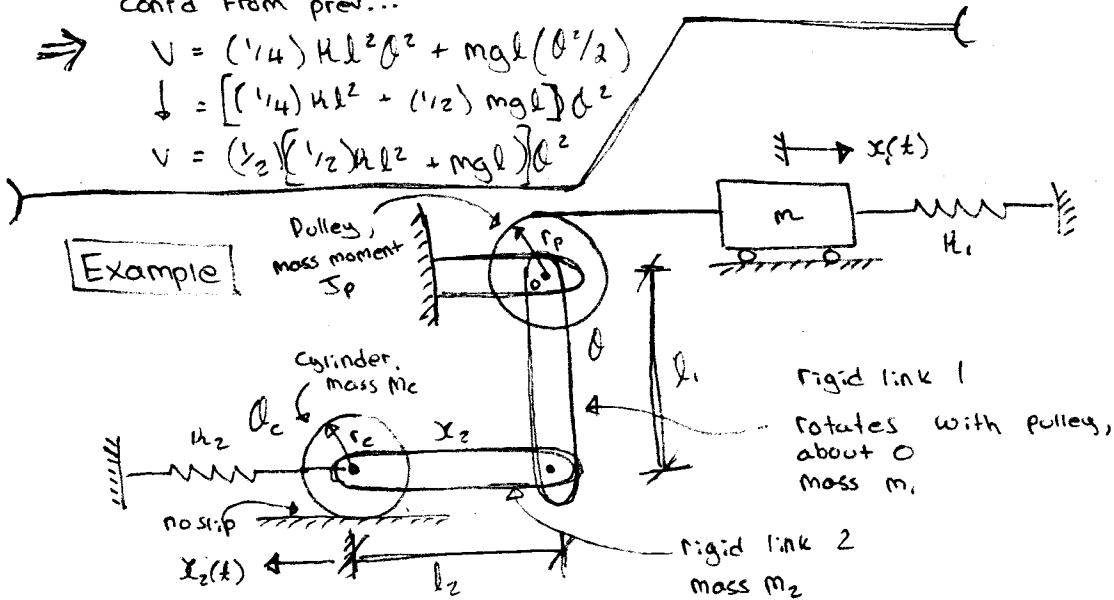 Cont'd from prev...
⇒ V = (1/4) Kl²θ² + mgl(θ²/2)
↓ = [(1/4) Kl² + (1/2) mgl] θ²
V = (1/2)[(1/2)Kl² + mgl] θ²
x₁(t)
m
K₁
Pulley,
mass moment
Jp
rp
o
Example
θ
l₁
rigid link 1
rotates with pulley,
about O
mass m₁
Cylinder,
mass mc
θc
rc
x₂
K₂
no slip
x₂(t)
l₂
rigid link 2
mass m₂